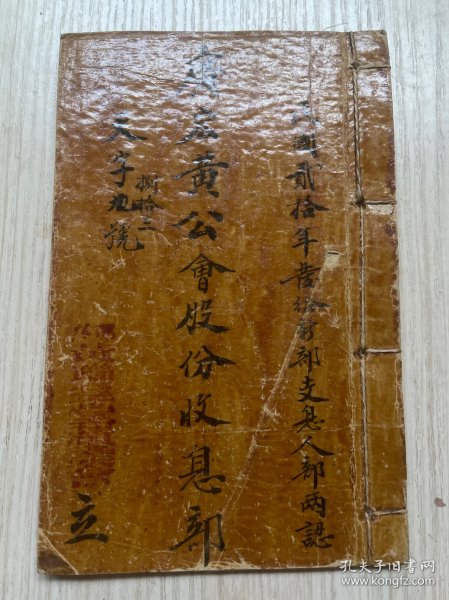 民國貳拾年發給新部支息人部兩認
黃公會股份收息部
天字
捌拾三
號
立
孔夫子旧书网
www.kongfz.com